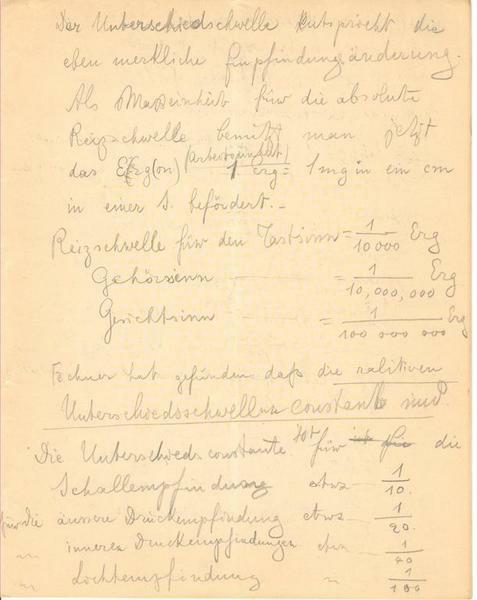 Der Unterschiedschwelle entspricht die
eben merkliche Empfindungsänderung.
Als Masseinheit für die absolute
Reizschwelle benutzt man jetzt
das Erg(on) (Arbeitseinheit) 1 erg = 1 mg in ein cm
in einer S. befördert. _
Reizschwelle für den Tastsinn = 1/10000 Erg
Gehörsinn = 1/10,000,000 Erg
Gesichtsinn = 1/100 000 000 Erg
Fechner hat gefunden daß die ralitiven
Unterschiedsschwellen constant sind.
Die Unterschieds constante ist für die
Schallempfindung etwa 1/10.
für die äussere Druckempfindung etwa 1/20.
" inneren Druckempfindungen etw 1/40
" Lichtempfindung " 1/100